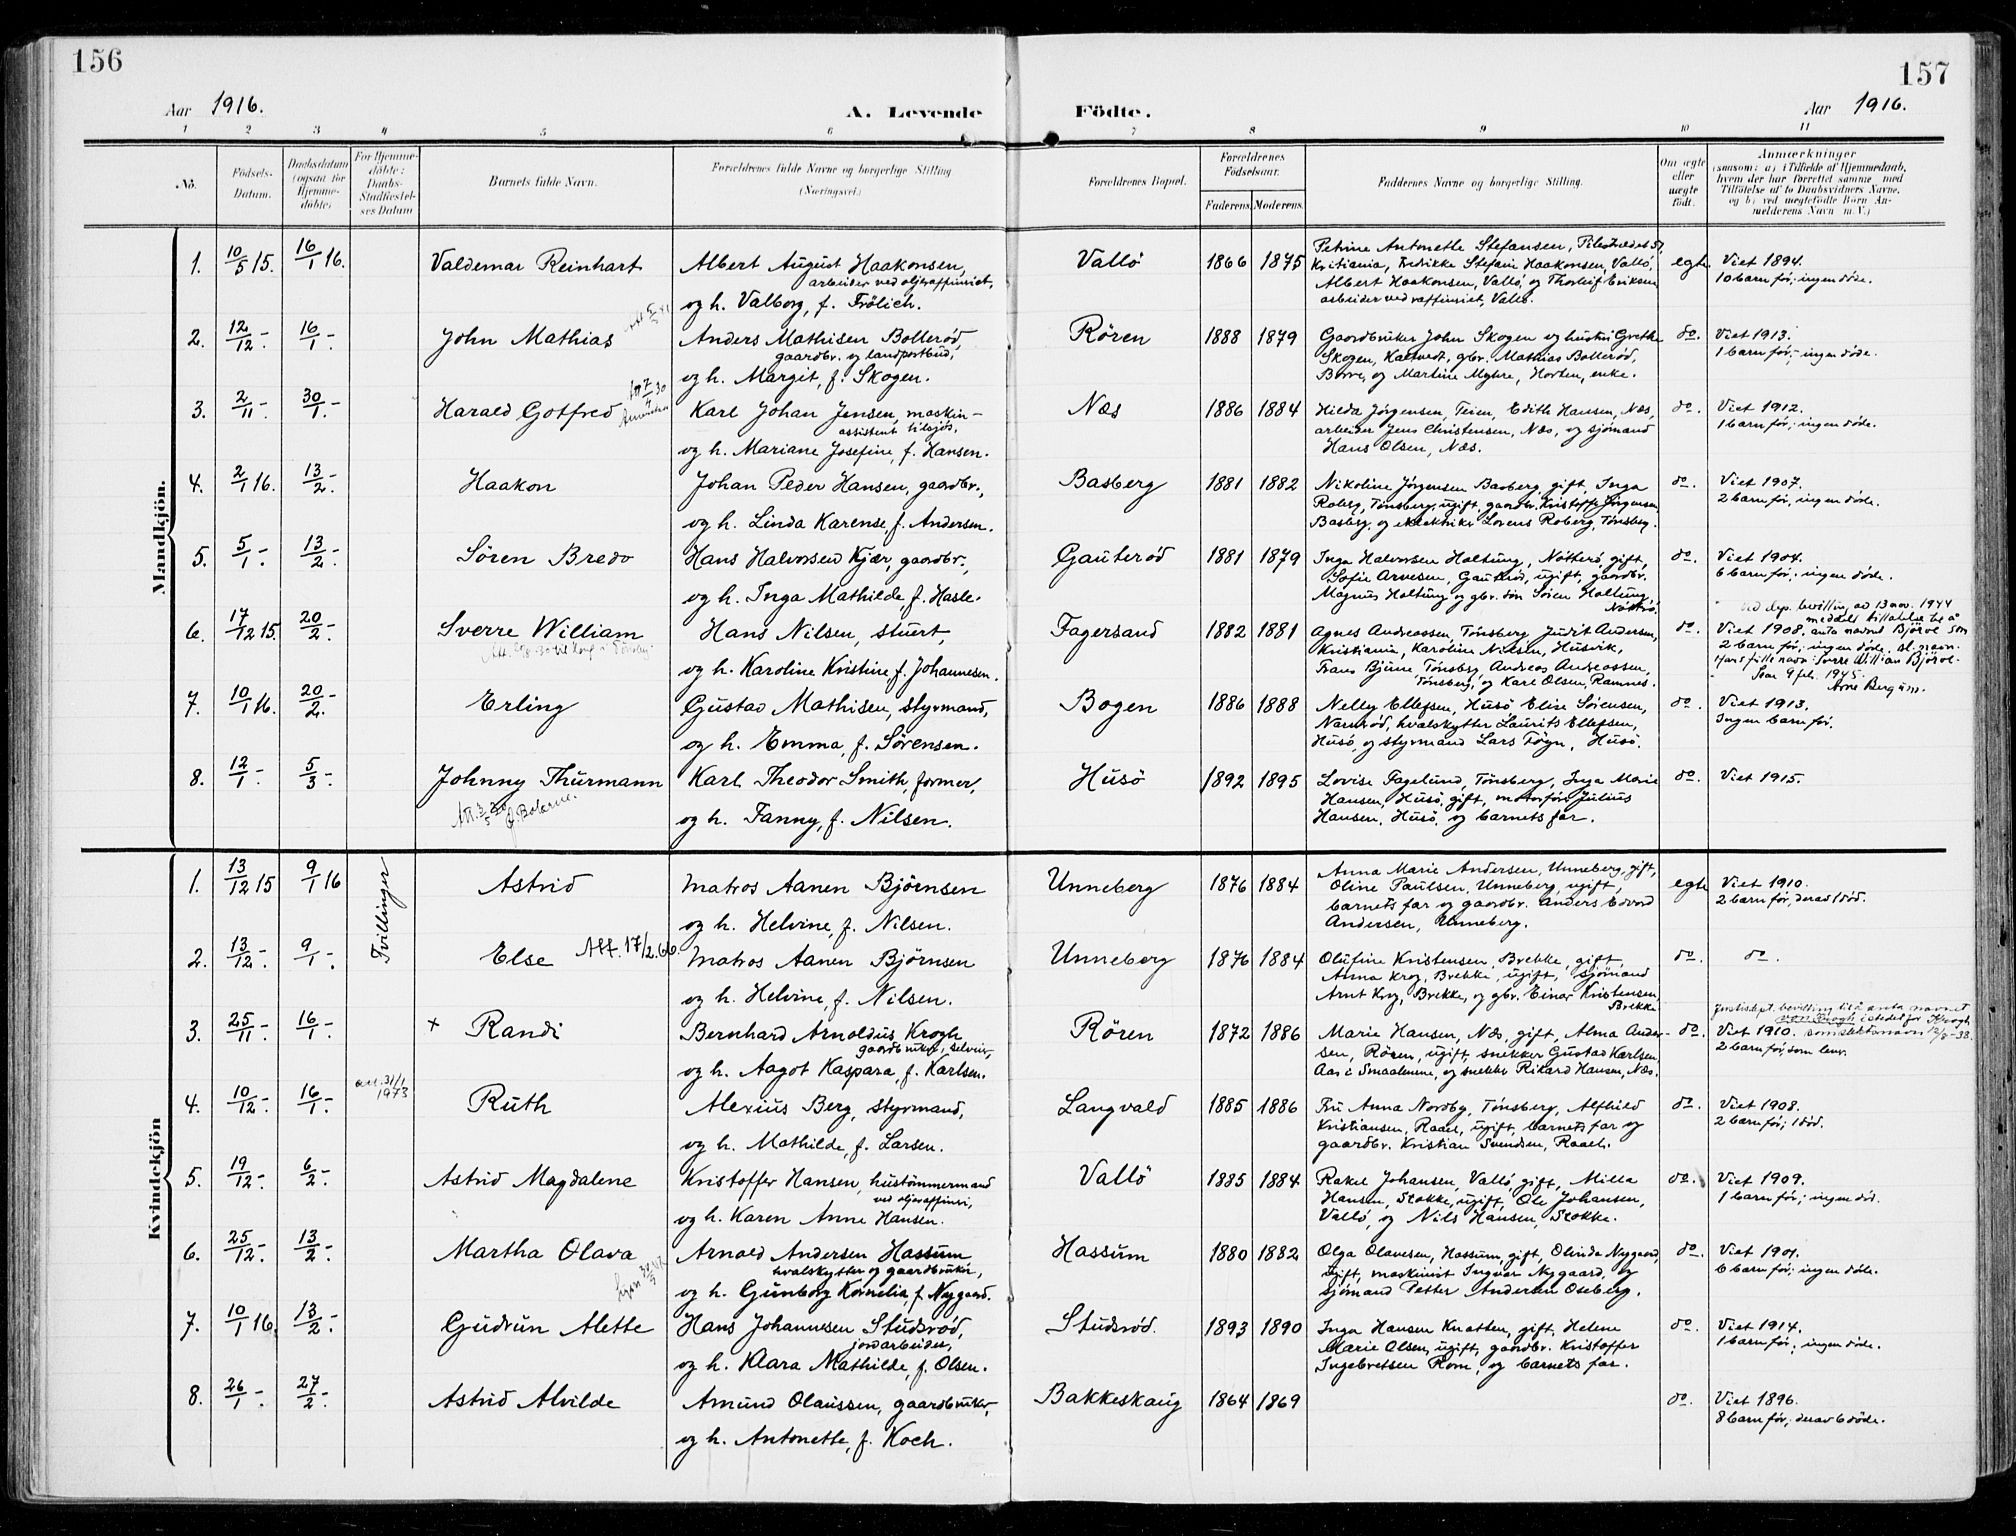 156
157
Aar 1916.
A. Levende Födte.
Aar 1916.
1 2 3 4 5 6 7 8 9 10 11
Nö.
Födsels-
Datum.
Daabsdatum
(ogsaa for
Hjemme-
döbte)
For Hjemme-
döbte:
Daabs-
Stadfæstel-
ses Datum
Barnets fulde Navn.
Forældrenes fulde Navne og borgerlige Stilling
(Næringsvei.)
Forældrenes Bopæl.
Forældrenes
Födselsaar.
Faderens. Moderens.
Faddernes Navne og borgerlige Stilling.
Om ægte
eller
uægte
födt.
Anmærkninger
(saasom: a) i Tilfælde af Hjemmedaab,
hvem der har forrettet samme med
Tilföielse af to Daabsvidners Navne,
og b) ved uægtefödte Börn An-
melderens Navn m. V.)
Mandkjön.
1. 10/5 15. 16/1 16. Valdemar Reinhart
Albert August Haakonsen,
arbeider ved oljeraffineriet,
og h. Valborg, f. Frölich.
Vallö 1866 1875
Petrine Antonette Stefansen,
Kristiania, Fredrikke Stefanie Haakonsen, Vallö,
Albert Haakonsen, Vallö, og Thorleif Eriksen
arbeider ved raffineriet, Vallö.
egte
Viet 1894.
10 barn før, ingen döde.
2. 12/12 -. 16/1 -. John Mathias
Anders Mathisen Bollerød,
gaardbr. og landpostbud,
og h. Margit, f. Skogen.
Rören 1888 1879
Gaardbruker John Skogen og hustru Grethe
Skogen, gbr. Mathias Bollerød,
Borre, og Martine Myhre, Horten, enke.
do.
Viet 1913.
1 barn før, - ingen döde.
3. 2/11 -. 30/1 -. Harald Gotfred
Karl Johan Jensen, maskin-
assistent tilsjøs,
og h. Mariane Josefine, f. Hansen.
Næs 1886 1884
Hilda Jörgensen, Teien, Edith Hansen, Næs,
arbeider Jens Christensen, Næs, og sjömand
Hans Olsen, Næs.
do.
Viet 1912.
1 barn før, ingen döde.
4. 2/1 16. 13/2 -. Haakon
Johan Peder Hansen, gaardbr.,
og h. Linda Karense, f. Andersen.
Basberg 1881 1882
Nikoline Jörgensen Basberg, gift, Inga
Roberg, Tönsberg, ugift, gaardbr. Kristoffer Jörgensen
Basberg, og elektriker Lorens Roberg, Tönsberg.
do.
Viet 1907.
2 barn før, ingen döde.
5. 5/1 -. 13/2 -. Sören Bredo
Hans Halvorsen Kjær, gaardbr.,
og h. Inga Mathilde, f. Hasle.
Gauterød 1881 1879
Inga Halvorsen Holtung, Nötterö, gift,
Sofie Arvesen, Gauterød, ugift, gaardbr.
Magnus Holtung og gbr. sön Sören Holtung,
Nötterö.
do.
Viet 1904.
6 barn før, ingen döde.
6. 17/12 15. 20/2 -. Sverre William
Hans Nilsen, stuert,
og h. Karoline Kristine, f. Johannesen.
Fagersand 1882 1881
Agnes Andreassen, Tönsberg, Judit Andersen,
Kristiania, Karoline Nilsen, Husvik,
Frans Bjune, Tönsberg, Andreas Andreassen,
Tönsberg, og Karl Olsen, Ramnes.
do.
Ved dep. bevilling av 13 nov. 1944
meddelt tillatelse til å
anta navnet Björvl som
Viet 1908.
2 barn før, ingen döde.
Hans fulle navn: Sverre William Björvl.
Sem 9 feb. 1945.
Arne Bergum.
7. 10/1 16. 20/2 -. Erling
Gustav Mathisen, styrmand,
og h. Emma, f. Sørensen.
Bogen 1886 1888
Nelly Ellefsen, Husö, Elise Sørensen,
Narverød, hvalskytter Laurits Ellefsen,
Husö, og styrmand Lars Föyn, Husö.
do.
Viet 1913.
Ingen barn før.
8. 12/1 -. 5/3 -. Johnny Thurmann
Karl Theodor Smith, former,
og h. Fanny, f. Nilsen.
Husö 1892 1895
Lovise Fagelund, Tönsberg, Inga Marie
Hansen, Husö, gift, motorförer Julius
Hansen, Husö, og barnets far.
do.
Viet 1915.
Kvindekjön
Tvillinger
1. 13/12 15 9/1 16 Astrid
Matros Aanen Björnsen
og h. Helvine, f. Nilsen.
Unneberg 1876 1884
Anna Marie Andersen, Unneberg, gift,
Oline Paulsen, Unneberg, ugift,
barnets far og gaardbr. Anders Edvard
Andersen, Unneberg.
egte
Viet 1910.
2 barn før, derav 1 död.
2. 13/12 -. 9/1 -. Else Att. 17/2.66.
Matros Aanen Björnsen
og h. Helvine, f. Nilsen.
Unneberg 1876 1884
Olufine Kristensen, Brekke, gift,
Anna Krog, Brekke, ugift, sjömand
Arnt Krog, Brekke, og gbr. Einar Kristensen,
Brekke
do. do.
3. 25/11 -. 16/1 -. + Randi
Bernhard Arnoldus Krogh
gaardbruker, selveier,
og h. Aagot Kaspara, f. Karlsen.
Rören 1872 1886
Marie Hansen, Næs, gift, Alma Ander-
sen, Rören, ugift, snekker Gustav Karlsen,
Aas i Smaalenene, og snekker Rikard Hansen, Næs.
do.
Justisdept. bevilling til å anta navnet
von Krogh istedet for Krogh
som slektsnavn 12/8-38.
Viet 1910.
2 barn før, som lever.
4. 10/12 -. 16/1 -. att. 31/1
1973
Ruth
Alexius Berg, styrmand,
og h. Mathilde, f. Larsen.
Langvald 1885 1886
Fru Anna Nordby, Tönsberg, Alfhild
Kristiansen, Raael, ugift, barnets far og
gaardbr. Kristian Svendsen, Raael.
do.
Viet 1908.
2 barn før, 1 död.
5. 19/12 -. 6/2 -. Astrid Magdalene
Kristoffer Hansen, hustömmermand
ved oljeraffineri,
og h. Karen Anne Hansen.
Vallö 1885 1884
Rakel Johansen, Vallö, gift, Milla
Hansen, Stokke, ugift, Ole Johansen,
Vallö, og Nils Hansen, Stokke.
do.
Viet 1909.
1 barn før, ingen död.
6. 25/12 -. 13/2 -. Martha Olava
Arnold Andersen Hassum
hvalskytter og gaardbruker,
og h. Gunborg Kornelia, f. Nygaard.
Hassum 1880 1882
Olga Olavesen, Hassum, gift, Olinda Nygaard,
ugift, maskinist Ingvar Nygaard, og
sjömand Petter Andersen Oseberg.
do.
Viet 1901.
6 barn før, ingen döde.
7. 10/1 16. 13/2 -. Gudrun Alette
Hans Johannesen Studsrød,
jordarbeider,
og h. Klara Mathilde, f. Olsen.
Studsrød. 1893 1890
Inga Hansen Knatten, gift, Helene
Marie Olsen, ugift, gaardbr. Kristoffer
Ingebretsen Rom, og barnets far.
do.
Viet 1914.
1 barn før, ingen döde.
8. 26/1 -. 27/2 -. Astrid Alvilde
Amund Olaussen, gaardbruker,
og h. Antonette, f. Koch.
Bakkeskaug 1864 1869
do.
Viet 1896.
8 barn før, derav 6 döde.